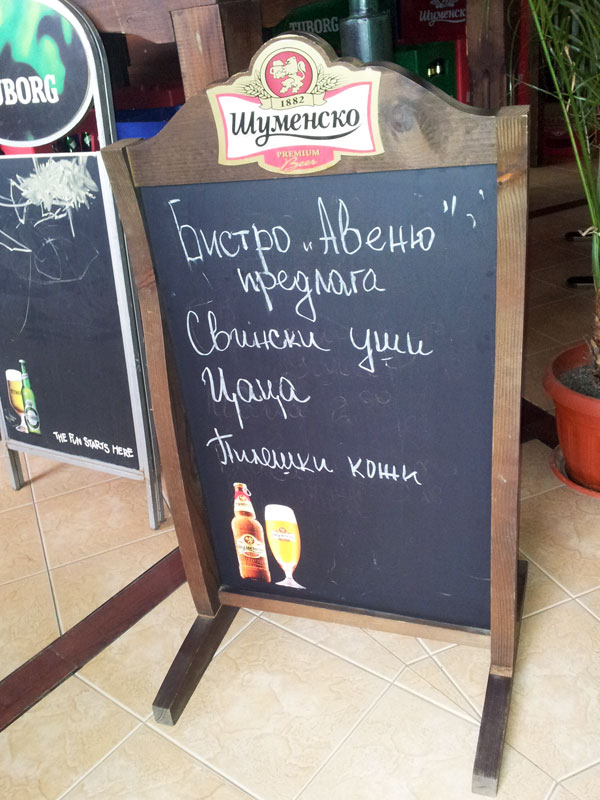 TUBORG
Шуменско
UBORG
1882
Шуменско
PREMIUM
Beer
Бистро „Авеню"
предлага
Свински уши
Цаца
Пилешки кожи
THE FUN STARTS HERE
Шуменско